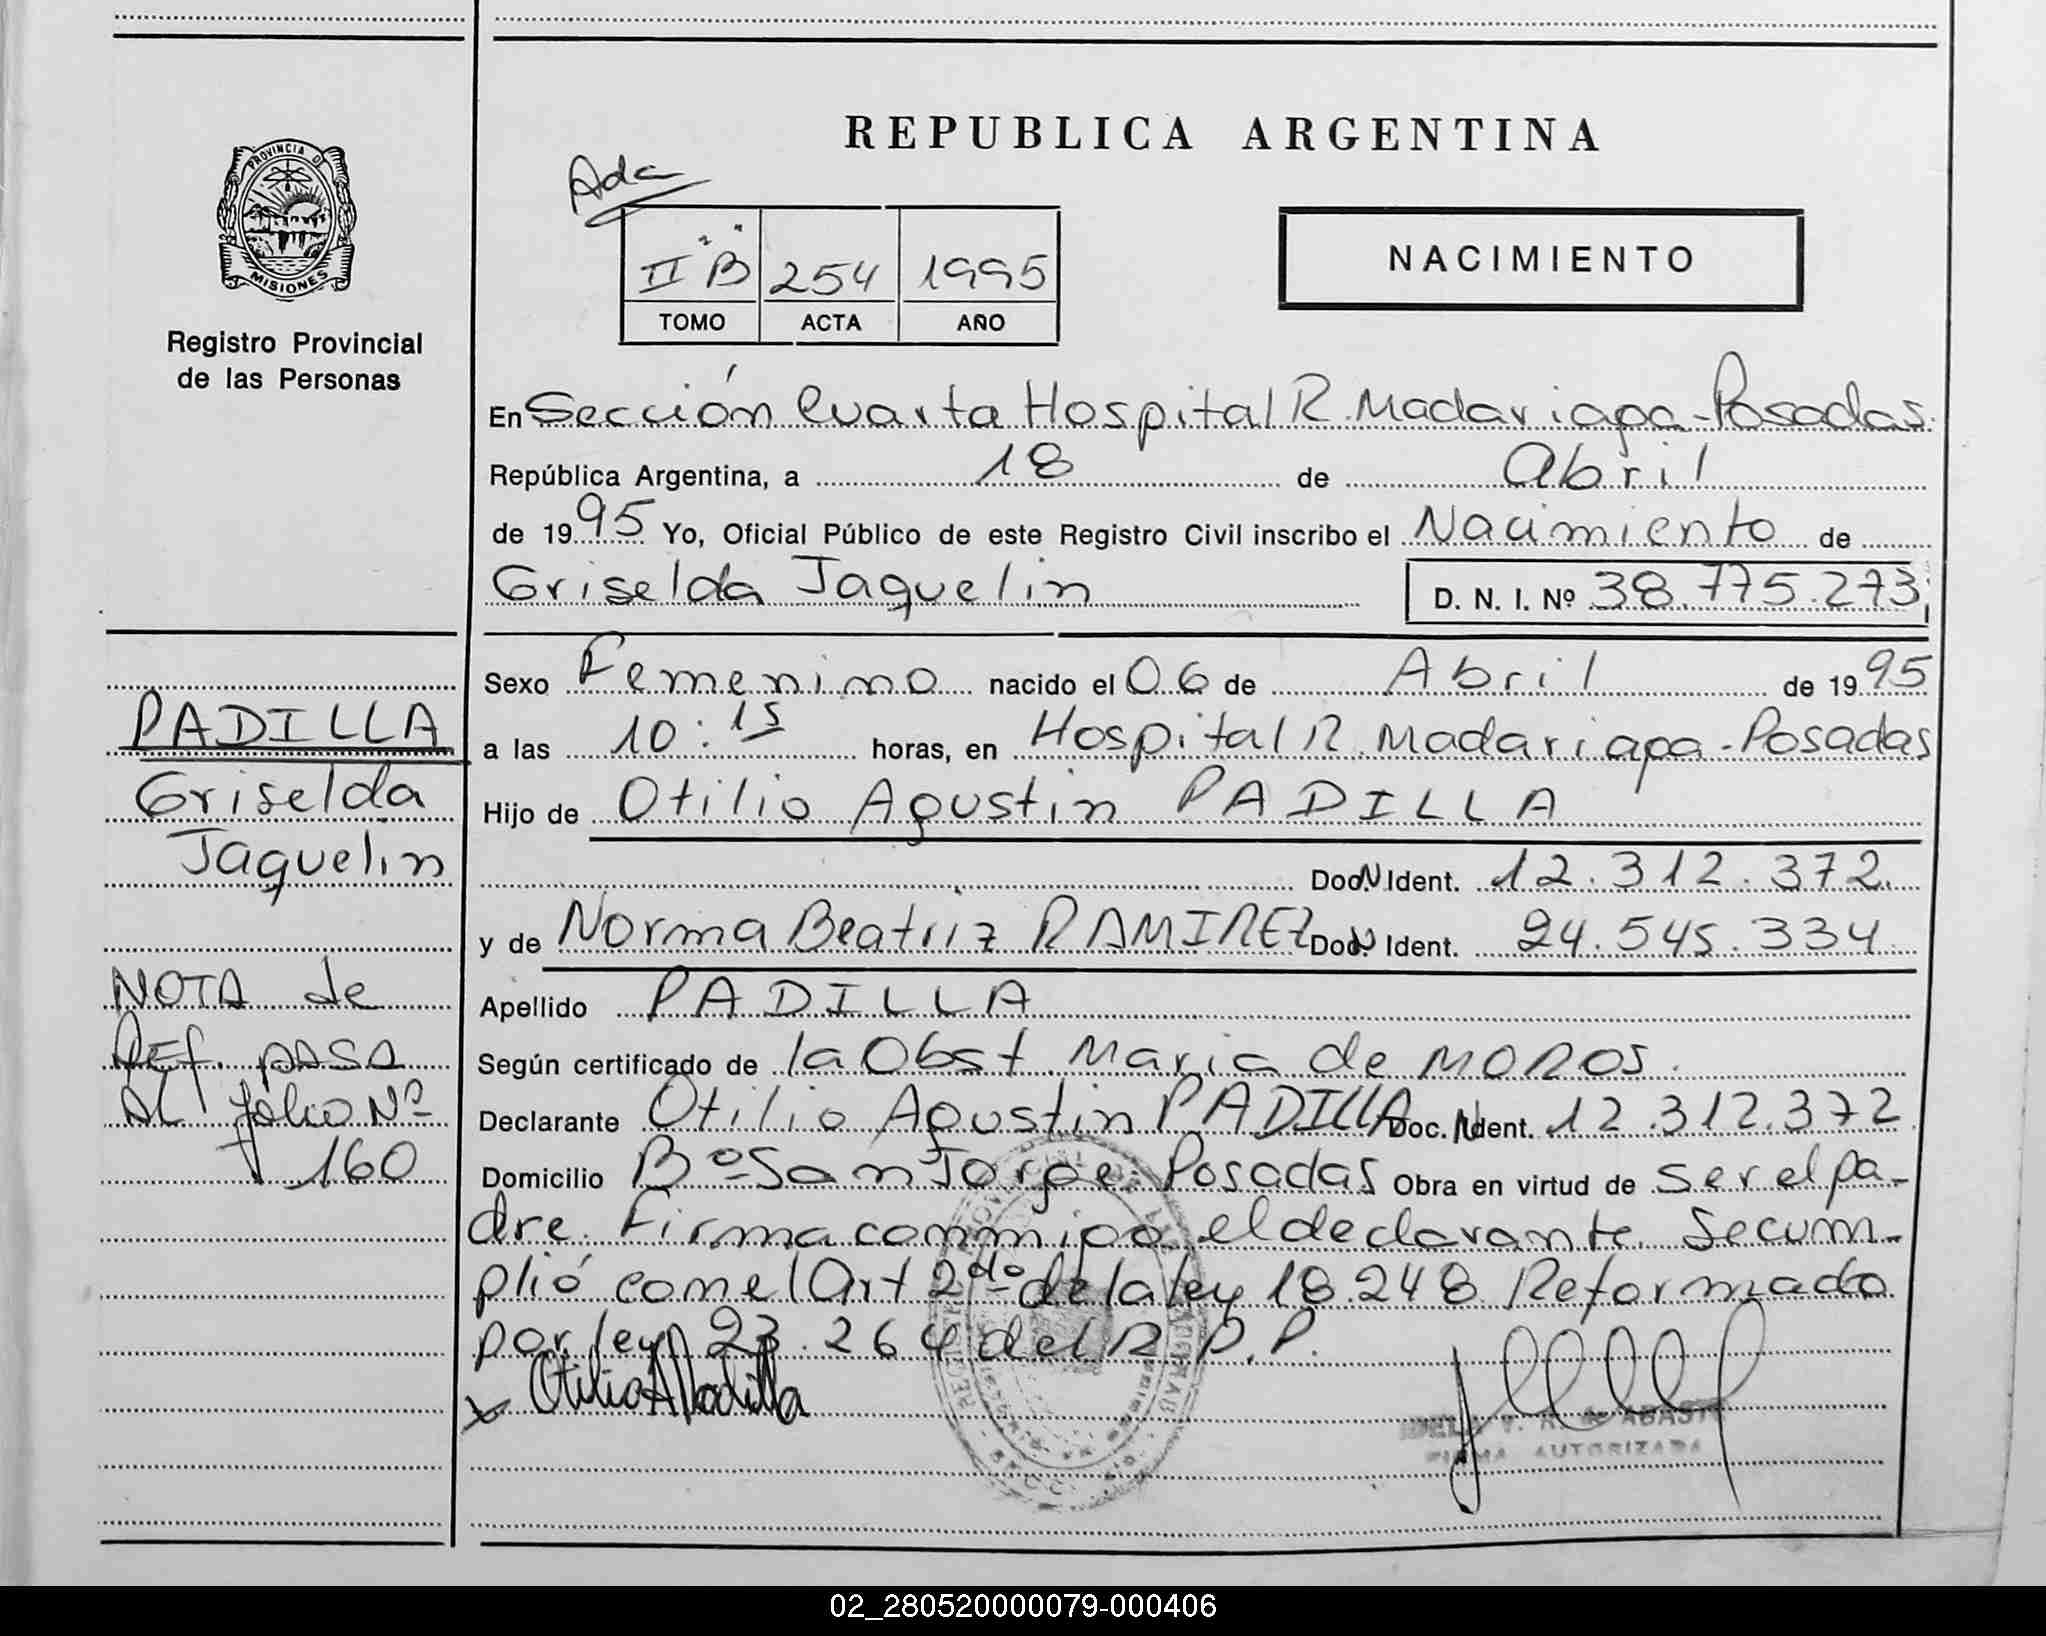 REPUBLICA ARGENTINA
Ada
PROVINCIA D
MISIONES
Registro Provincial
de las Personas
II "B" 254 1995
TOMO ACTA AÑO
NACIMIENTO
En Sección Cuarta Hospital R. Madariaga - Posadas.
República Argentina, a 18 de Abril
de 1995 Yo, Oficial Público de este Registro Civil inscribo el Nacimiento de
Griselda Jaquelin D. N. I. Nº 38.775.273
Sexo Femenino nacido el 06 de Abril de 1995
a las 10:15 horas, en Hospital R. Madariaga - Posadas
Hijo de Otilio Agustin PADILLA
Doc. Ident. 12.312.372.
y de Norma Beatriz RAMIREZ Doc. Ident. 24.545.334
Apellido PADILLA
Según certificado de la Obst Maria de MOROS.
Declarante Otilio Agustin PADILLA Doc. Ident. 12.312.372
Domicilio Bº San Jorge Posadas Obra en virtud de ser el pa-
dre. Firma conmigo el declarante. Se cum-
plió con el Art 2do de la ley 18.248 Reformado
por ley 23.264 del R.P.P.
Otilio A Padilla
DE ABAST
FIRMA AUTORIZADA
PADILLA
Griselda
Jaquelin
NOTA de
REF. PASA
AL folio Nº
160
02_280520000079-000406